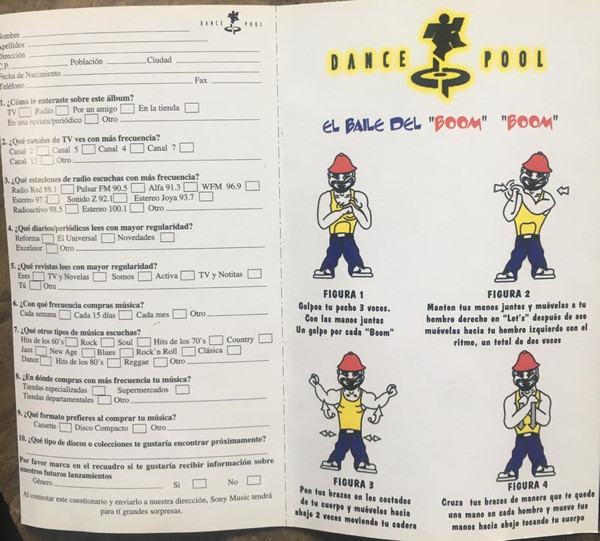 Nombre
DANCE POOL
Apellidos
Dirección
C.P. Población Ciudad
Fecha de Nacimiento
Teléfono Fax
1. ¿Cómo te enteraste sobre este álbum?
TV Radio Por un amigo En la tienda
En una revista/periódico Otro
2. ¿Qué canales de TV ves con más frecuencia?
Canal 2 Canal 5 Canal 4 Canal 7
Canal 13 Otro
3. ¿Qué estaciones de radio escuchas con más frecuencia?
Radio Red 88.1 Pulsar FM 90.5 Alfa 91.3 WFM 96.9
Estereo 97.7 Sonido Z 92.1 Estereo Joya 93.7
Radioactivo 98.5 Estereo 100.1 Otro
4. ¿Qué diarios/periódicos lees con mayor regularidad?
Reforma El Universal Novedades
Excelsior Otro
5. ¿Qué revistas lees con mayor regularidad?
Eres TV y Novelas Somos Activa TV y Notitas
Tú Otro
6. ¿Con qué frecuencia compras música?
Cada semana Cada 15 días Cada mes Otro
7. ¿Qué otros tipos de música escuchas?
Hits de los 60's Rock Soul Hits de los 70's Country
Jazz New Age Blues Rock'n Roll Clásica
Dance Hits de los 80's Reggae Otro
8. ¿En dónde compras con más frecuencia tu música?
Tiendas especializadas Supermercados
Tiendas departamentales Otro
9. ¿Qué formato prefieres al comprar tu música?
Cassette Disco Compacto Otro
10. ¿Qué tipo de discos o colecciones te gustaría encontrar próximamente?
Por favor marca en el recuadro si te gustaría recibir información sobre
nuestros futuros lanzamientos
Género Si No
Al contestar este cuestionario y enviarlo a nuestra dirección, Sony Music tendrá
para tí grandes sorpresas.
DANCE POOL
EL BAILE DEL "BOOM" "BOOM"
FIGURA 1
Golpea tu pecho 3 veces.
Con las manos juntas
Un golpe por cada "Boom"
FIGURA 2
Manten tus manos juntas y muévelas a tu
hombro derecho en "Let's" después de eso
muévelas hacia tu hombro izquierdo con el
ritmo, un total de dos veces
FIGURA 3
Pon tus brazos en los costados
de tu cuerpo y muévelos hacia
abajo 2 veces moviendo tu cadera
FIGURA 4
Cruza tus brazos de manera que te quede
una mano en cada hombro y mueve tus
manos hacia abajo tocando tu cuerpo